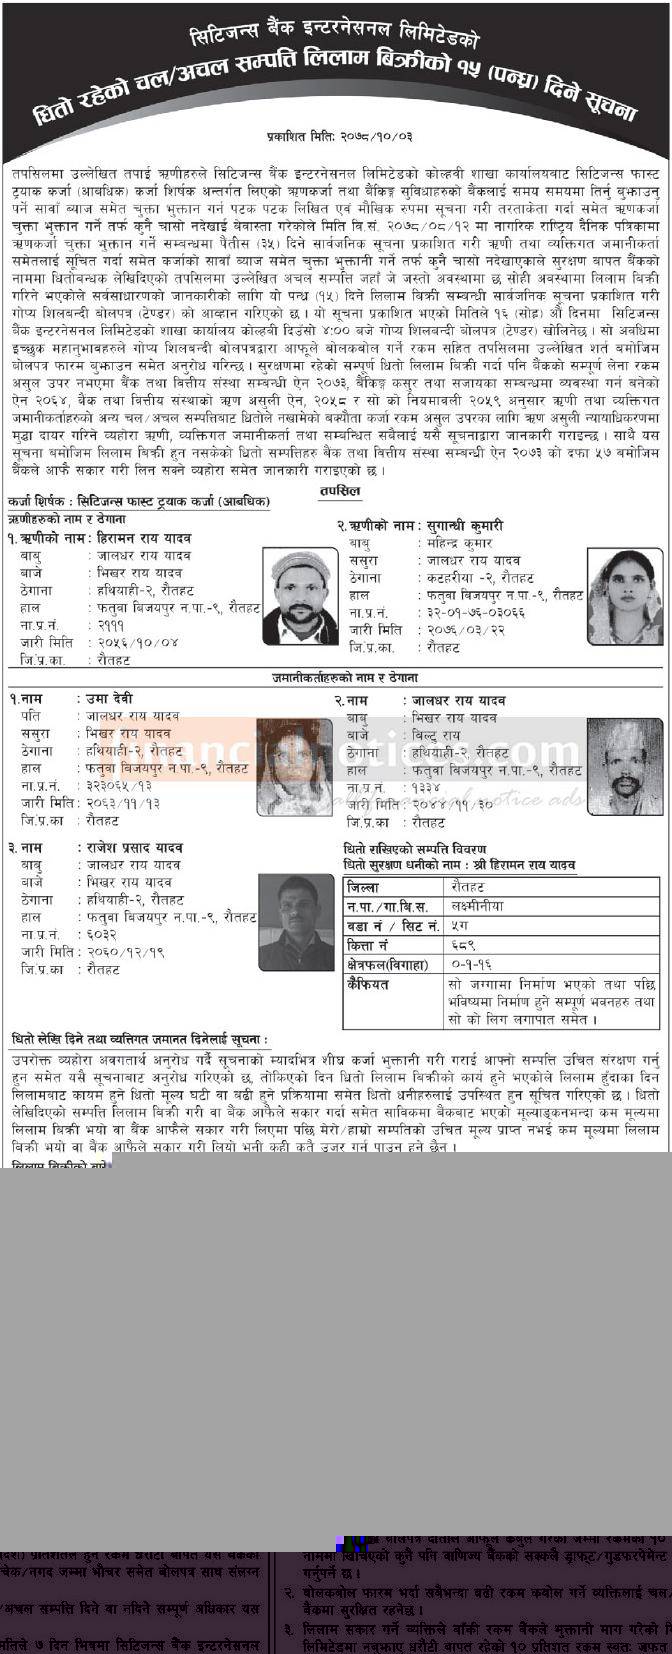 सिटिजन्स बैंक इन्टरनेसनल लिमिटेडको
धितो रहेको चल/अचल सम्पत्ति लिलाम बिक्रीको १५ (पन्ध्र) दिने सूचना
प्रकाशित मिति: २०७८/१०/०३
तपसिलमा उल्लेखित तपाई ऋणीहरुले सिटिजन्स बैंक इन्टरनेसनल लिमिटेडको कोल्हवी शाखा कार्यालयबाट सिटिजन्स फास्ट
ट्रयाक कर्जा (आबधिक) कर्जा शिर्षक अन्तर्गत लिएको ऋणकर्जा तथा बैंकिङ्ग सुविधाहरुको बैंकलाई समय समयमा तिर्नु बुझाउनु
पर्ने सावाँ ब्याज समेत चुक्ता भुक्तान गर्न पटक पटक लिखित एवं मौखिक रुपमा सूचना गरी तरताकेता गर्दा समेत ऋणकर्जा
चुक्ता भुक्तान गर्ने तर्फ कुनै चासो नदेखाई बेवास्ता गरेकोले मिति वि.सं. २०७८/०८/१२ मा नागरिक राष्ट्रिय दैनिक पत्रिकामा
ऋणकर्जा चुक्ता भुक्तान गर्ने सम्बन्धमा पैंतीस (३५) दिने सार्वजनिक सूचना प्रकाशित गरी ऋणी तथा व्यक्तिगत जमानीकर्ता
समेतलाई सूचित गर्दा समेत कर्जाको सावाँ ब्याज समेत चुक्ता भुक्तानी गर्ने तर्फ कुनै चासो नदेखाएकाले सुरक्षण बापत बैंकको
नाममा धितोबन्धक लेखिदिएको तपसिलमा उल्लेखित अचल सम्पत्ति जहाँ जे जस्तो अवस्थामा छ सोही अवस्थामा लिलाम बिक्री
गरिने भएकोले सर्वसाधारणको जानकारीको लागि यो पन्ध्र (१५) दिने लिलाम बिक्री सम्बन्धी सार्वजनिक सूचना प्रकाशित गरी
गोप्य शिलबन्दी बोलपत्र (टेण्डर) को आव्हान गरिएको छ । यो सूचना प्रकाशित भएको मितिले १६ (सोह्र) औं दिनमा सिटिजन्स
बैंक इन्टरनेसनल लिमिटेडको शाखा कार्यालय कोल्हवी दिउँसो ४:०० बजे गोप्य शिलबन्दी बोलपत्र (टेण्डर) खोलिनेछ । सो अवधिमा
इच्छुक महानुभावहरुले गोप्य शिलबन्दी बोलपत्रद्वारा आफूले बोलकबोल गर्ने रकम सहित तपसिलमा उल्लेखित शर्त बमोजिम
बोलपत्र फारम बुझाउन समेत अनुरोध गरिन्छ । सुरक्षणमा रहेको सम्पूर्ण धितो लिलाम बिक्री गर्दा पनि बैंकको सम्पूर्ण लेना रकम
असुल उपर नभएमा बैंक तथा वित्तीय संस्था सम्बन्धी ऐन २०७३, बैंकिङ्ग कसुर तथा सजायका सम्बन्धमा व्यवस्था गर्न बनेको
ऐन २०६४, बैंक तथा वित्तीय संस्थाको ऋण असुली ऐन, २०५८ र सो को नियमावली २०५९ अनुसार ऋणी तथा व्यक्तिगत
जमानीकर्ताहरुको अन्य चल/अचल सम्पत्तिबाट धितोले नखामेको बक्यौता कर्जा रकम असुल उपरका लागि ऋण असुली न्यायाधिकरणमा
मुद्दा दायर गरिने व्यहोरा ऋणी, व्यक्तिगत जमानीकर्ता तथा सम्बन्धित सवैलाई यसै सूचनाद्वारा जानकारी गराइन्छ । साथै यस
सूचना बमोजिम लिलाम बिक्री हुन नसकेको धितो सम्पत्तिहरु बैंक तथा वित्तीय संस्था सम्बन्धी ऐन २०७३ को दफा ५७ बमोजिम
बैंकले आफै सकार गरी लिन सक्ने व्यहोरा समेत जानकारी गराइएको छ ।
तपसिल
कर्जा शिर्षक : सिटिजन्स फास्ट ट्रयाक कर्जा (आबधिक)
ऋणीहरुको नाम र ठेगाना
१. ऋणीको नाम : हिरामन राय यादव
बाबु : जालधर राय यादव
बाजे : भिखर राय यादव
ठेगाना : हथियाही-२, रौतहट
हाल : फतुवा बिजयपुर न.पा.-९, रौतहट
ना.प्र.नं. : २१११
जारी मिति : २०५६/१०/०४
जि.प्र.का. : रौतहट
२. ऋणीको नाम : सुगान्धी कुमारी
बाबु : महिन्द्र कुमार
ससुरा : जालधर राय यादव
ठेगाना : कटहरीया -२, रौतहट
हाल : फतुवा बिजयपुर न.पा.-९, रौतहट
ना.प्र.नं. : ३२-०१-७६-०३०६६
जारी मिति : २०७६/०३/२२
जि.प्र.का. : रौतहट
जमानीकर्ताहरुको नाम र ठेगाना
१. नाम : उमा देवी
पति : जालधर राय यादव
ससुरा : भिखर राय यादव
ठेगाना : हथियाही-२, रौतहट
हाल : फतुवा बिजयपुर न.पा.-९, रौतहट
ना.प्र.नं. : ३२३०६५/१३
जारी मिति : २०६३/११/१३
जि.प्र.का : रौतहट
२. नाम : जालधर राय यादव
बाबु : भिखर राय यादव
बाजे : बिल्टु राय
ठेगाना : हथियाही-२, रौतहट
हाल : फतुवा बिजयपुर न.पा.-९, रौतहट
ना.प्र.नं. : १३३४
जारी मिति : २०४४/११/३०
जि.प्र.का : रौतहट
३. नाम : राजेश प्रसाद यादव
बाबु : जालधर राय यादव
बाजे : भिखर राय यादव
ठेगाना : हथियाही-२, रौतहट
हाल : फतुवा बिजयपुर न.पा.-९, रौतहट
ना.प्र.नं. : ६०३२
जारी मिति : २०६०/१२/१९
जि.प्र.का : रौतहट
धितो राखिएको सम्पति विवरण
धितो सुरक्षण धनीको नाम : श्री हिरामन राय यादव
जिल्ला रौतहट
न.पा./गा.बि.स. लक्ष्मीनीया
वडा नं / सिट नं. ५ग
कित्ता नं ६८९
क्षेत्रफल(विगाहा) ०-१-१६
कैफियत सो जग्गामा निर्माण भएको तथा पछि
भविष्यमा निर्माण हुने सम्पूर्ण भवनहरु तथा
सो को लिग लगापात समेत ।
धितो लेखि दिने तथा व्यक्तिगत जमानत दिनेलाई सूचना :
उपरोक्त व्यहोरा अवगतार्थ अनुरोध गर्दै सूचनाको म्यादभित्र शीघ्र कर्जा भुक्तानी गरी गराई आफ्नो सम्पत्ति उचित संरक्षण गर्नु
हुन समेत यसै सूचनाबाट अनुरोध गरिएको छ, तोकिएको दिन धितो लिलाम बिक्रीको कार्य हुने भएकोले लिलाम हुँदाका दिन
लिलामबाट कायम हुने धितो मूल्य घटी वा बढी हुने प्रक्रियामा समेत धितो धनीहरुलाई उपस्थित हुन सूचित गरिएको छ । धितो
लेखिदिएको सम्पत्ति लिलाम बिक्री गरी वा बैंक आफैले सकार गर्दा समेत साविकमा बैंकबाट भएको मूल्याङ्कनभन्दा कम मूल्यमा
लिलाम बिक्री भयो वा बैंक आफैले सकार गरी लिएमा पछि मेरो/हाम्रो सम्पतिको उचित मूल्य प्राप्त नभई कम मूल्यमा लिलाम
बिक्री भयो वा बैंक आफैले सकार गरी लियो भनी कही कतै उजुर गर्न पाउन हुने छैन ।
लिलाम बिक्रीको बारे
प्रतिशतले हुने रकम धरौटी बापत यस बैंकको
चेक/नगद जम्मा भौचर समेत बोलपत्र साथ संलग्न
/अचल सम्पत्ति दिने वा नदिने सम्पूर्ण अधिकार यस
७ दिन भित्रमा सिटिजन्स बैंक इन्टरनेसनल
बोलपत्र दाताले आफूले कबुल गरेको जम्मा रकमको १०
नाममा खिचिएको कुनै पनि वाणिज्य बैंकको सक्कलै ड्राफ्ट/गुडफरपेमेन्ट
गर्नुपर्ने छ ।
२. बोलकबोल फारम भर्दा सबैभन्दा बढी रकम कबोल गर्ने व्यक्तिलाई चल/
बैंकमा सुरक्षित रहनेछ ।
३. लिलाम सकार गर्ने व्यक्तिले बाँकी रकम बैंकले भुक्तानी माग गरेको
लिमिटेडमा नबुझाए धरौटी बापत रहेको १० प्रतिशत रकम स्वतः जफत